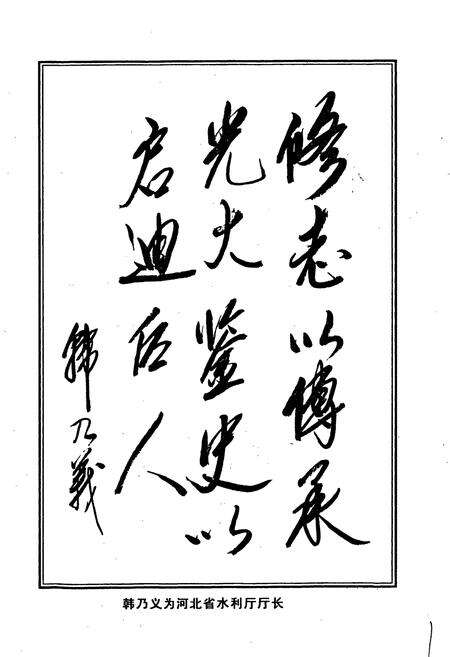 修志以传承
光大鉴史以
启迪后人
韩乃義
韩乃义为河北省水利厅厅长